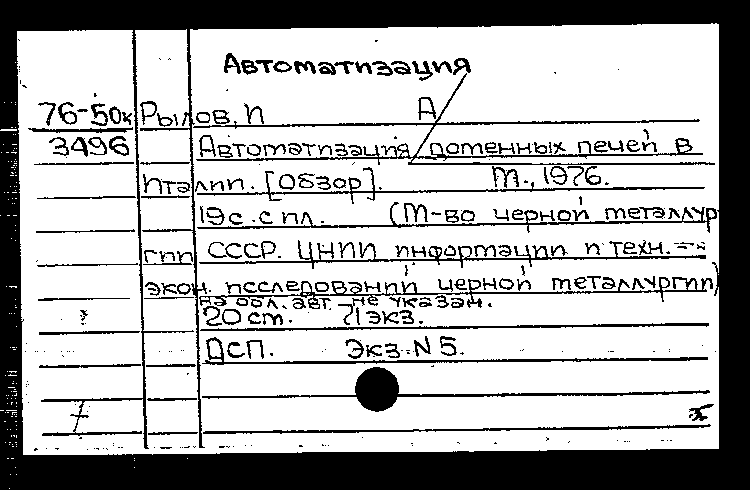 Автоматизация
76-50к Рылов, И А
3496 Автоматизация доменных печей в
Италии. [Обзор]. М., 1976.
19 с. с ил. (М-во черной металлур
гии СССР. ЦНИИ информации и техн.-
экон. исследований черной металлургии)
на обл. авт. не указан.
20 см. 1 экз.
ДСП. Экз. N 5.